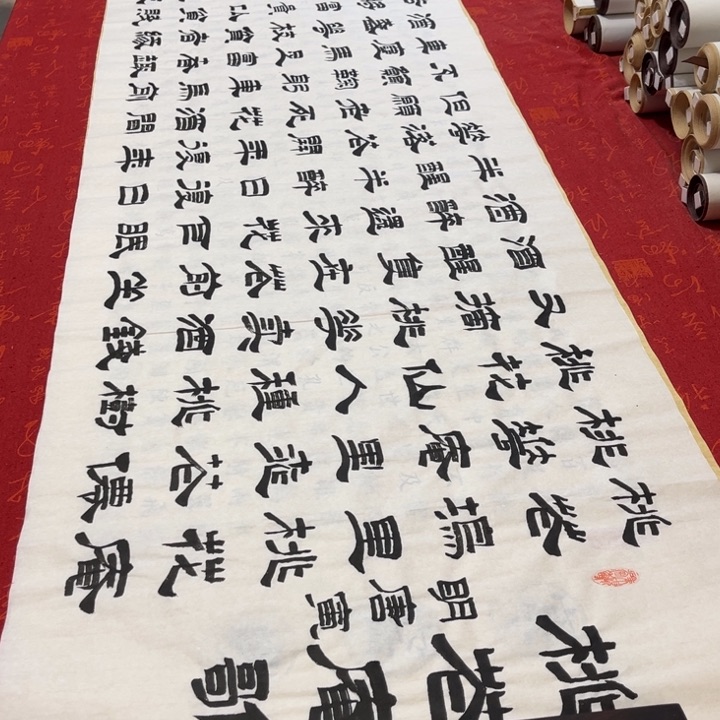 桃花庵歌
明唐寅
桃花塢里桃花庵
桃花庵里桃花仙
桃花仙人種桃樹
又摘桃花賣酒錢
酒醒隻在花前坐
酒醉還來花下眠
半醒半醉日復日
花落花開年復年
但願老死花酒間
不願鞠躬車馬前